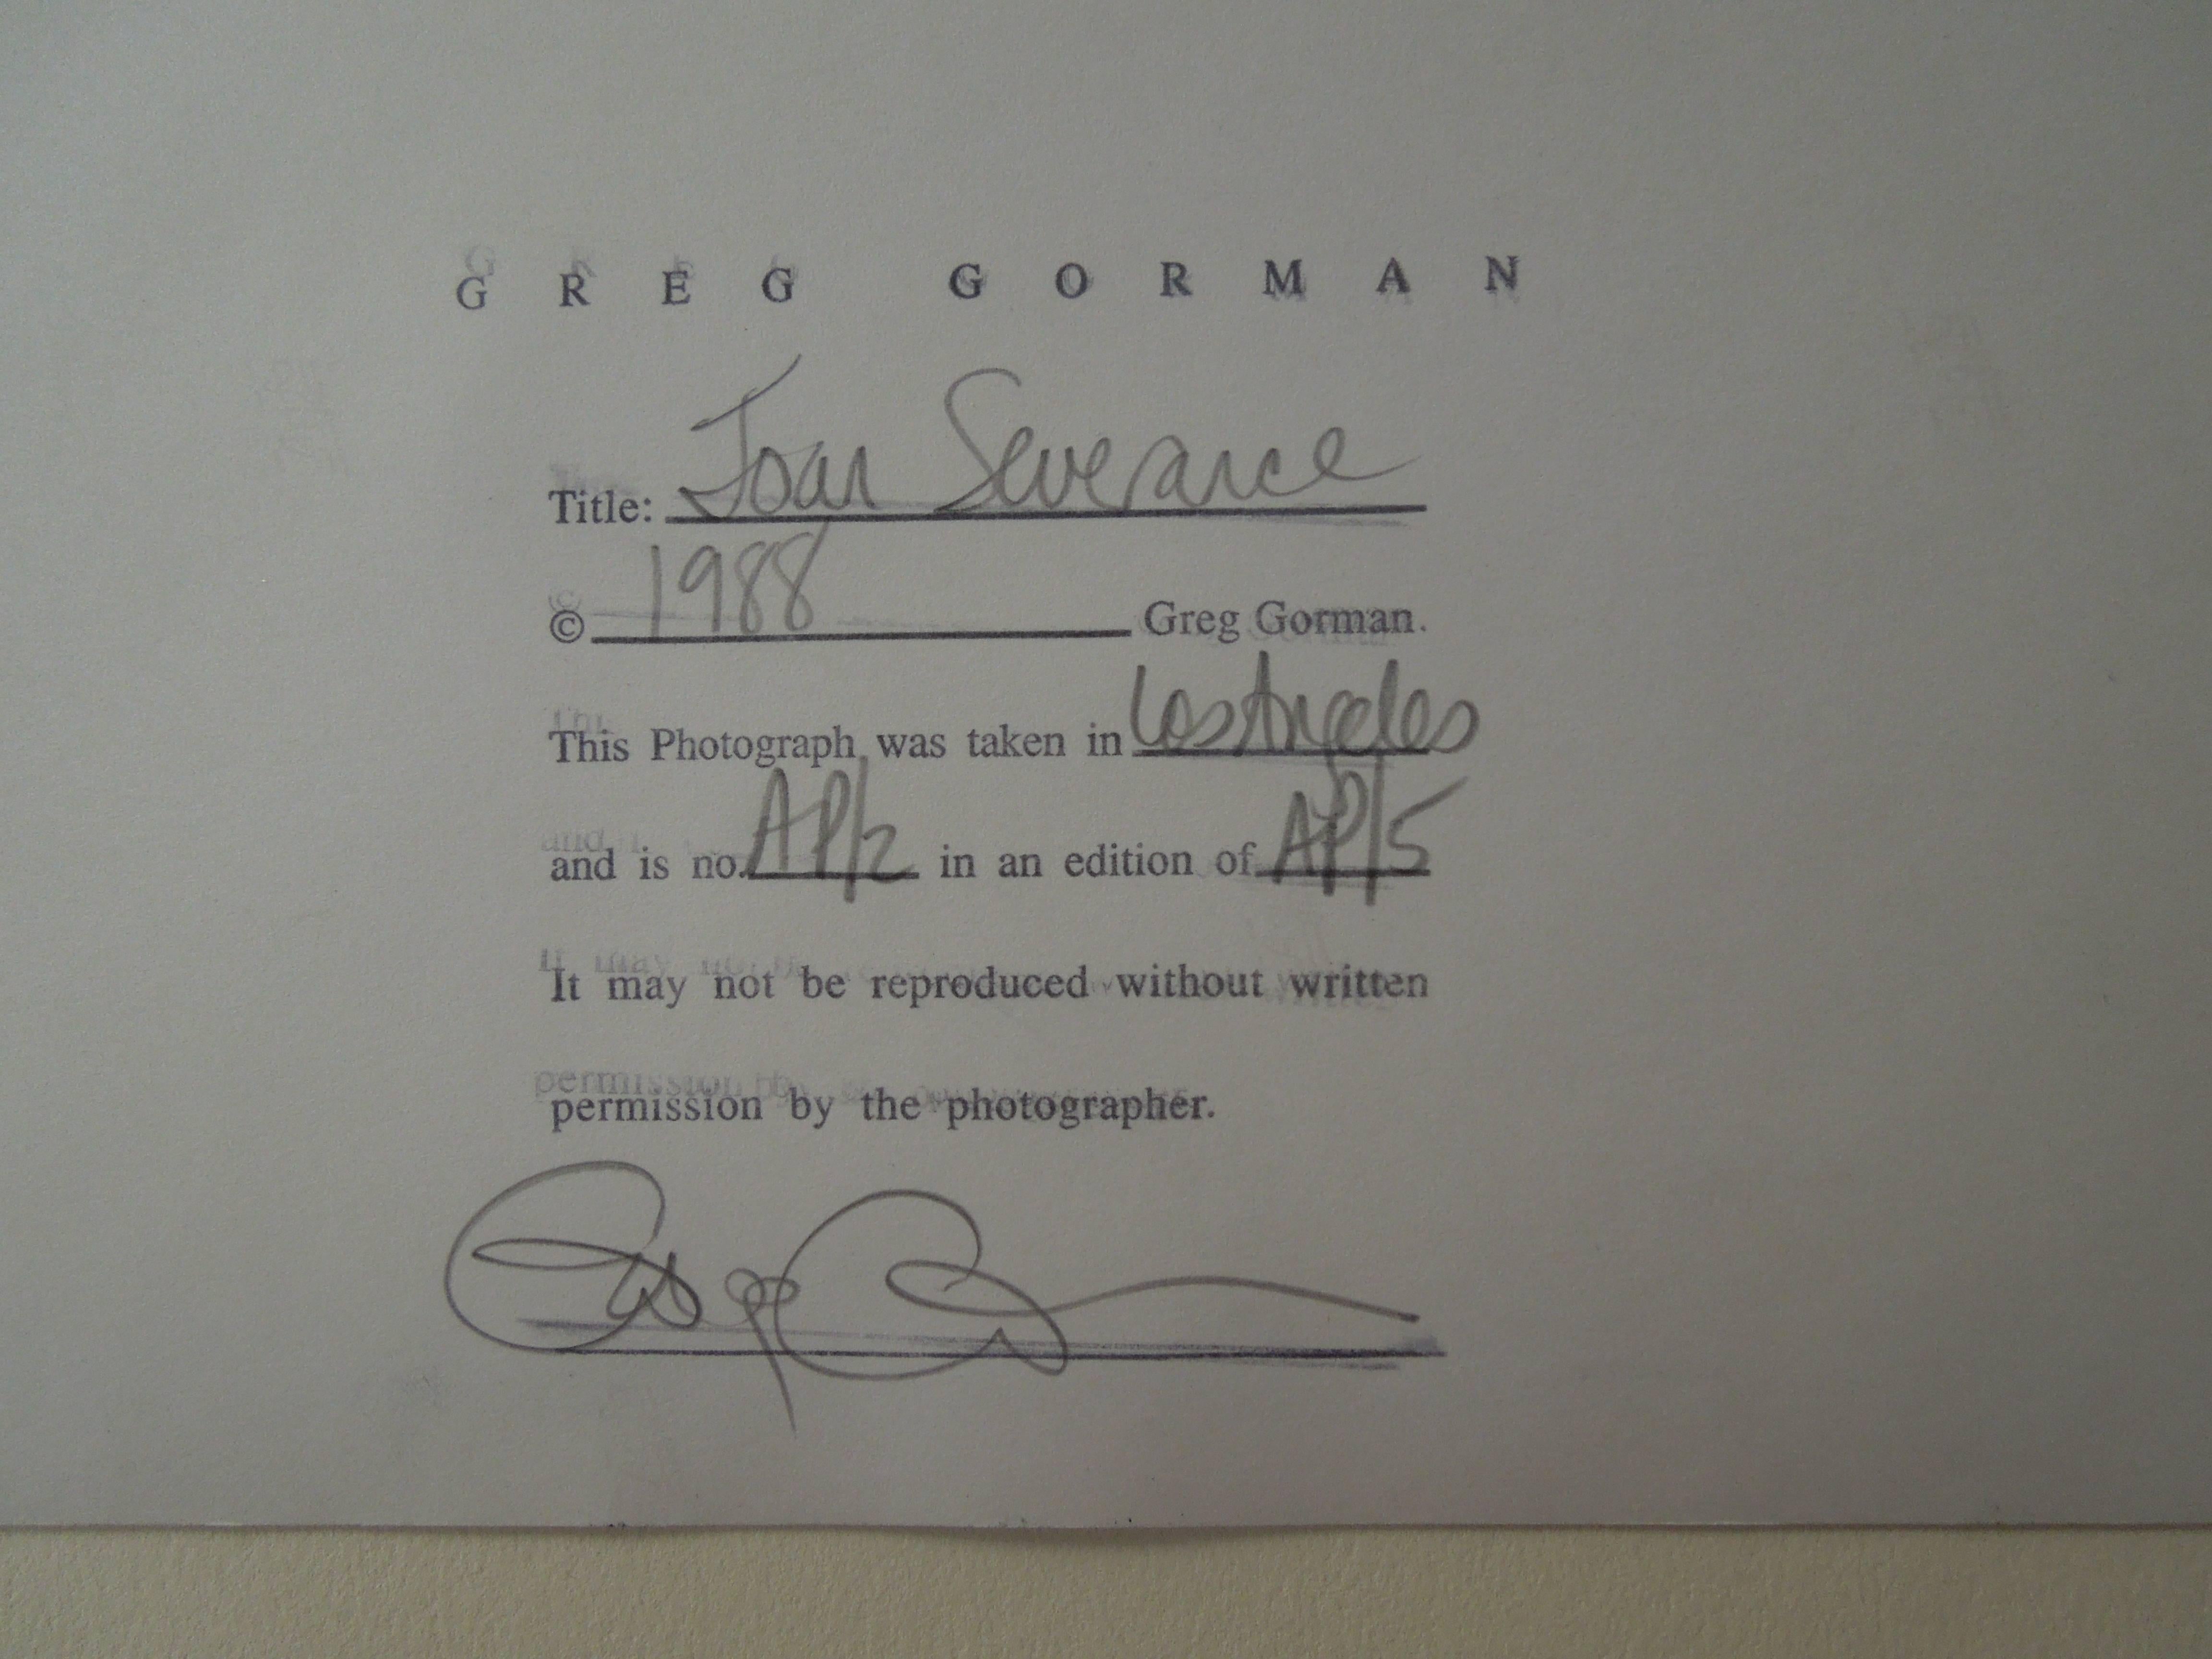 GREG GORMAN
Title: Joan Severance
© 1988 Greg Gorman.
This Photograph was taken in Los Angeles
and is no. AP/2 in an edition of AP/5
It may not be reproduced without written
permission by the photographer.
Greg Gorman